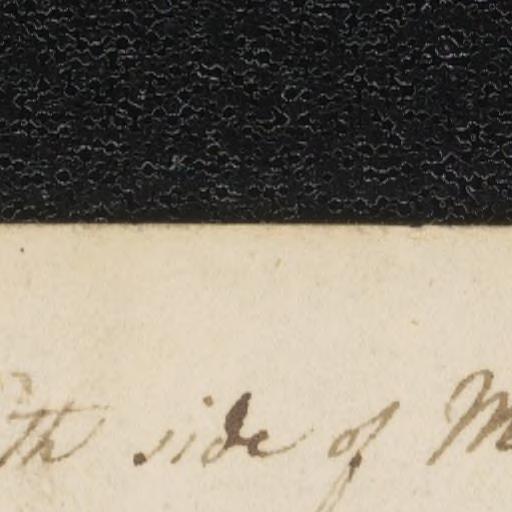 th side of M